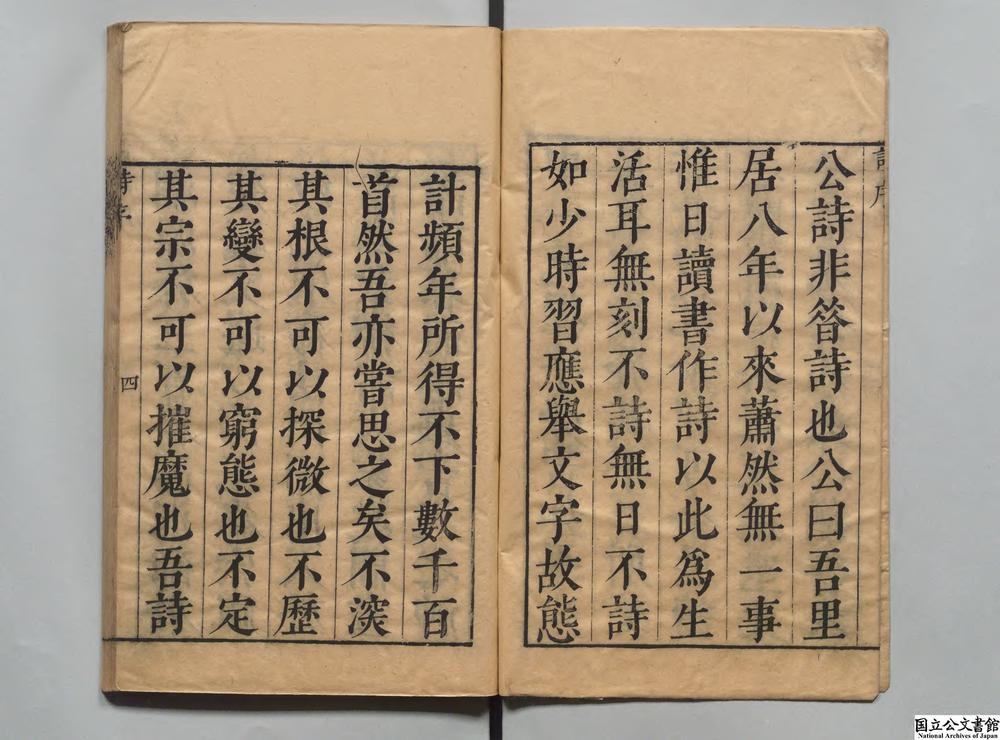 公詩非咎詩也公曰吾里
居八年以來蕭然無一事
惟日讀書作詩以此爲生
活耳無刻不詩無日不詩
如少時習應舉文字故態
計頻年所得不下數千百
首然吾亦嘗思之矣不深
其根不可以探微也不歷
其變不可以窮態也不定
其宗不可以摧魔也吾詩
四
国立公文書館
National Archives of Japan